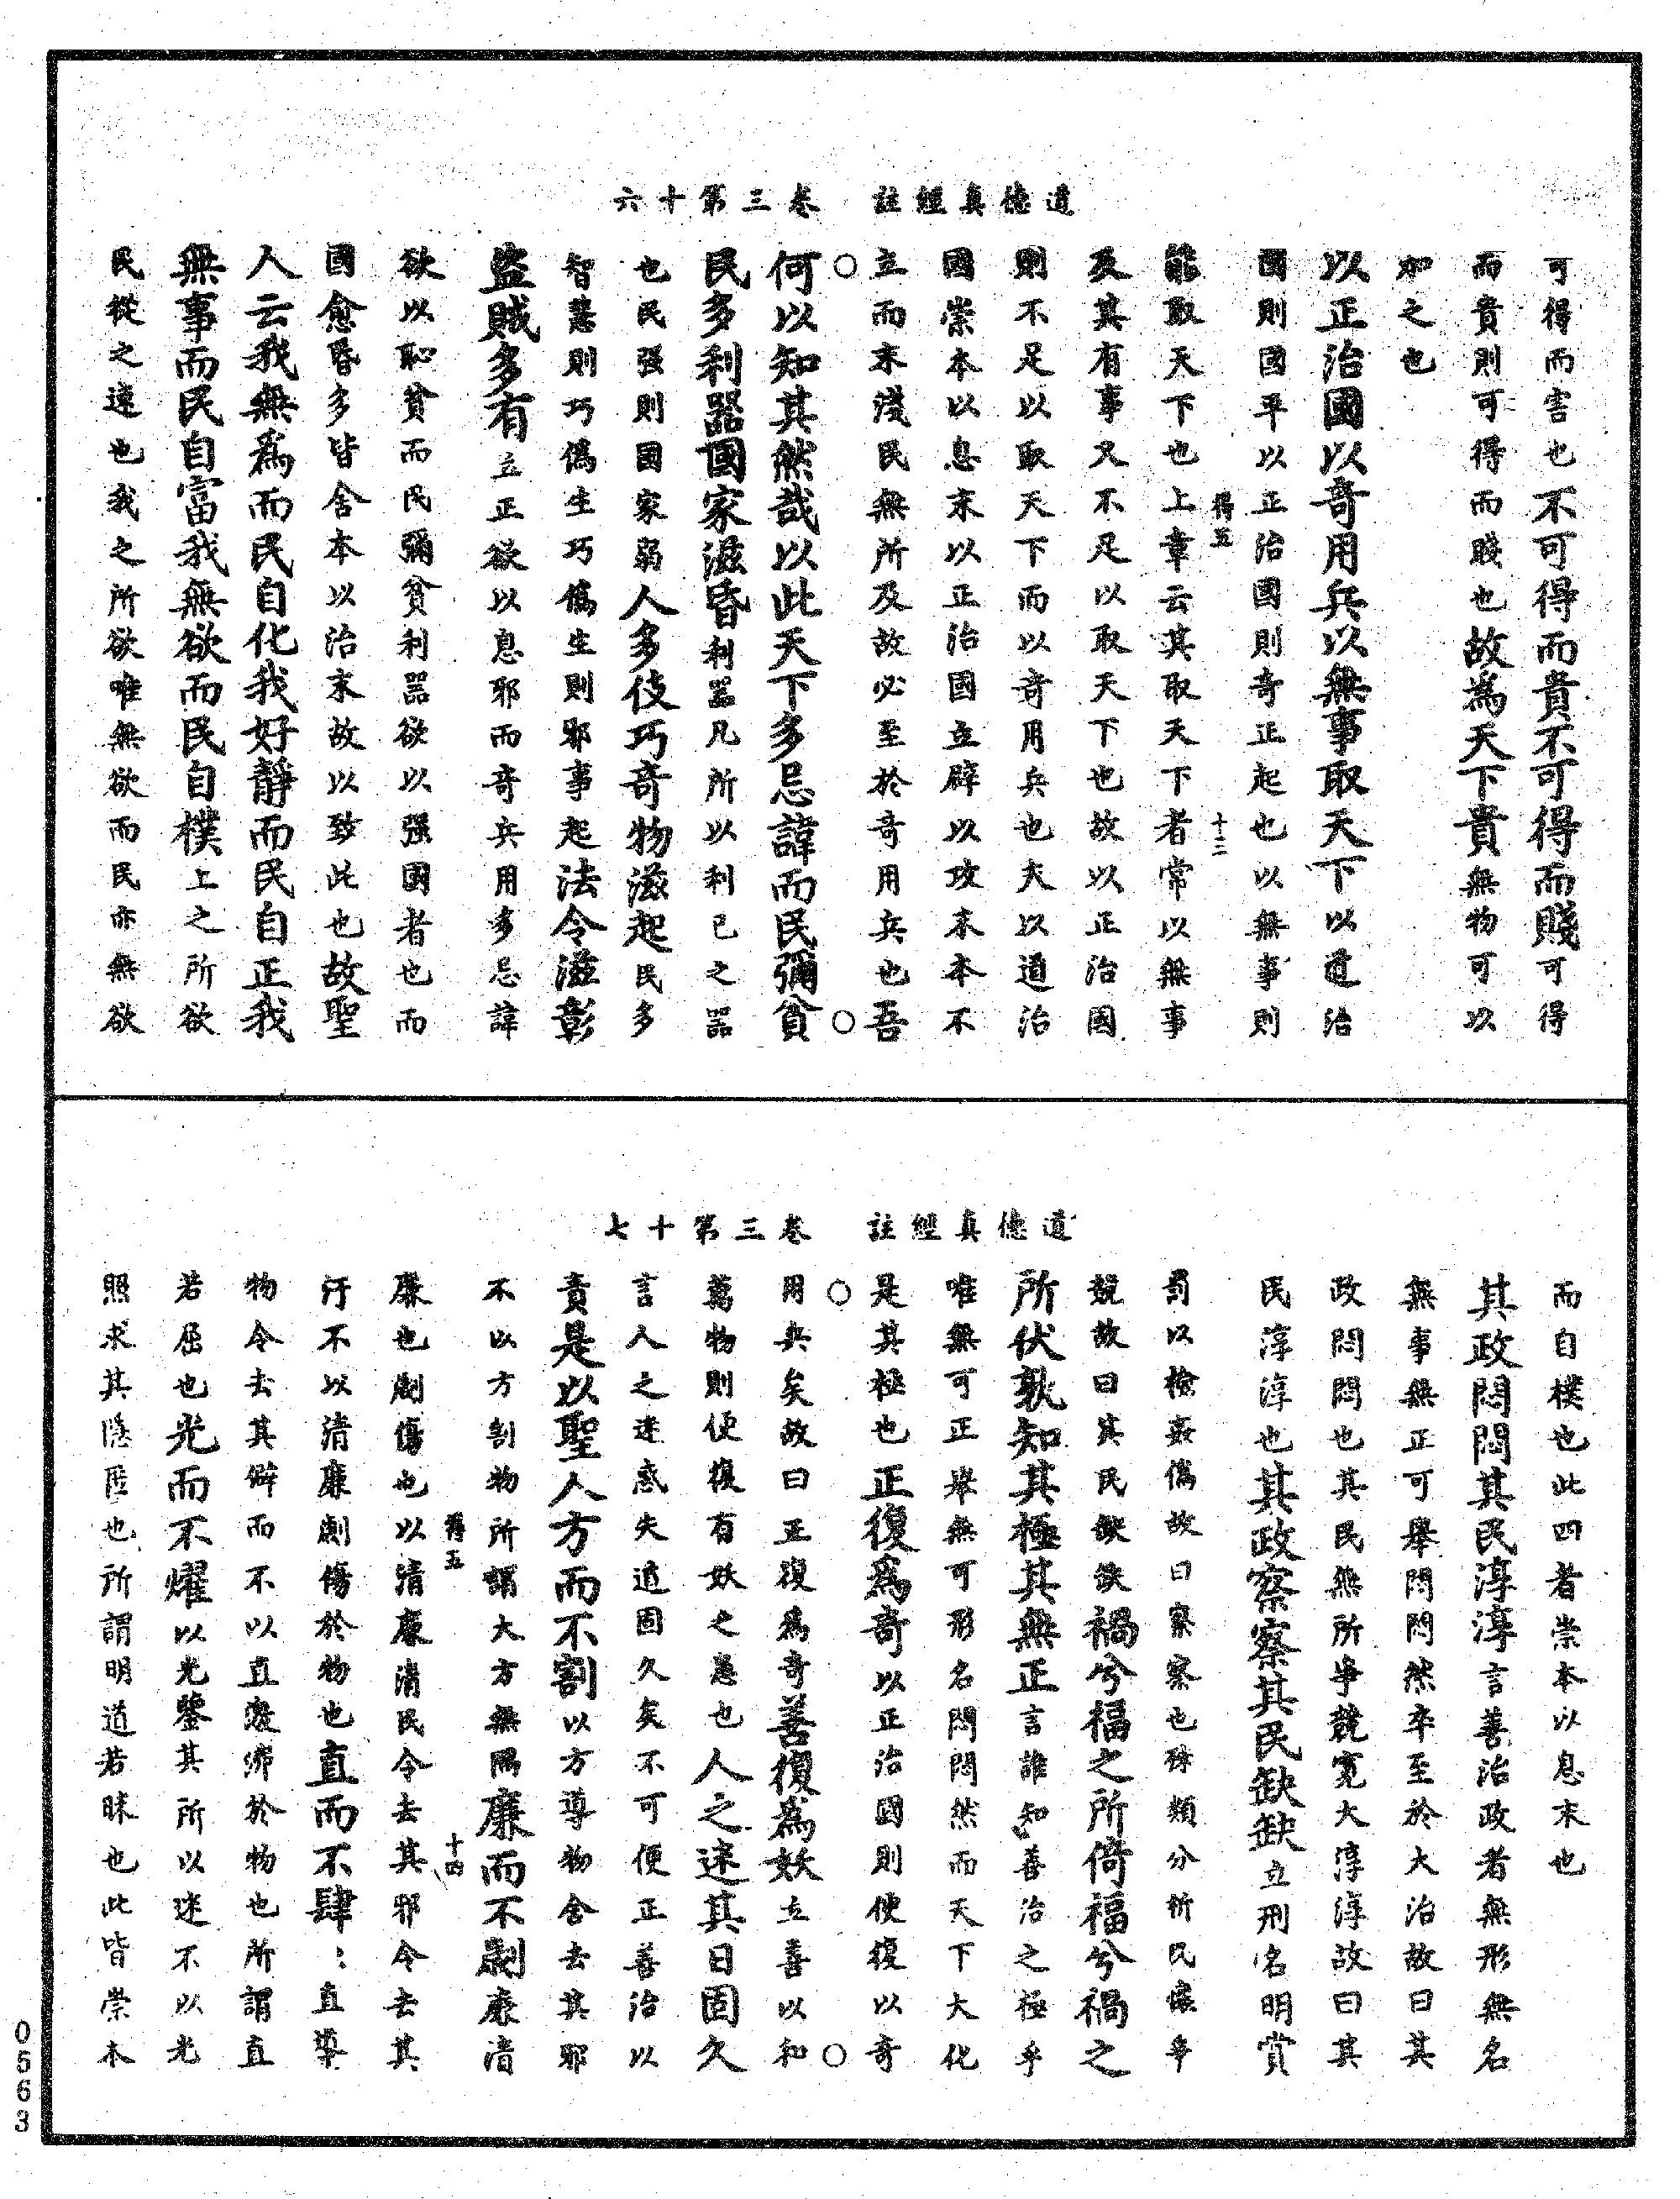 道德真經註　卷三第十六
可得而害也不可得而貴不可得而賤可得
而貴則可得而賤也故爲天下貴無物可以
加之也
以正治國以奇用兵以無事取天下以道治
國則國平以正治國則奇正起也以無事則
得五　十三
能取天下也上章云其取天下者常以無事
及其有事又不足以取天下也故以正治國
則不足以取天下而以奇用兵也夫以道治
國崇本以息末以正治國立辟以攻末本不
立而末淺民無所及故必至於奇用兵也吾
何以知其然哉以此天下多忌諱而民彌貧
民多利器國家滋昏利器凡所以利己之器
也民强則國家弱人多伎巧奇物滋起民多
智慧則巧僞生巧僞生則邪事起法令滋彰
盜賊多有立正欲以息邪而奇兵用多忌諱
欲以恥貧而民彌貧利器欲以强國者也而
國愈昏多皆舍本以治末故以致此也故聖
人云我無爲而民自化我好靜而民自正我
無事而民自富我無欲而民自樸上之所欲
民從之速也我之所欲唯無欲而民亦無欲
道德真經註　卷三第十七
而自樸也此四者崇本以息末也
其政悶悶其民淳淳言善治政者無形無名
無事無正可舉悶悶然卒至於大治故曰其
政悶悶也其民無所爭競寬大淳淳故曰其
民淳淳也其政察察其民缺缺立刑名明賞
罰以檢姦僞故曰察察也殊類分析民懷爭
競故曰其民缺缺禍兮福之所倚福兮禍之
所伏孰知其極其無正言誰知善治之極乎
唯無可正舉無可形名悶悶然而天下大化
是其極也正復爲奇以正治國則便復以奇
用兵矣故曰正復爲奇善復爲妖立善以和
萬物則便復有妖之患也人之迷其日固久
言人之迷惑失道固久矣不可便正善治以
責是以聖人方而不割以方導物舍去其邪
不以方割物所謂大方無隅廉而不劌廉清
得五　十四
廉也劌傷也以清廉清民令去其邪令去其
汙不以清廉劌傷於物也直而不肆：直導
物令去其僻而不以直激沸於物也所謂直
若屈也光而不燿以光鑒其所以迷不以光
照求其隱匿也所謂明道若昧也此皆崇本
0563